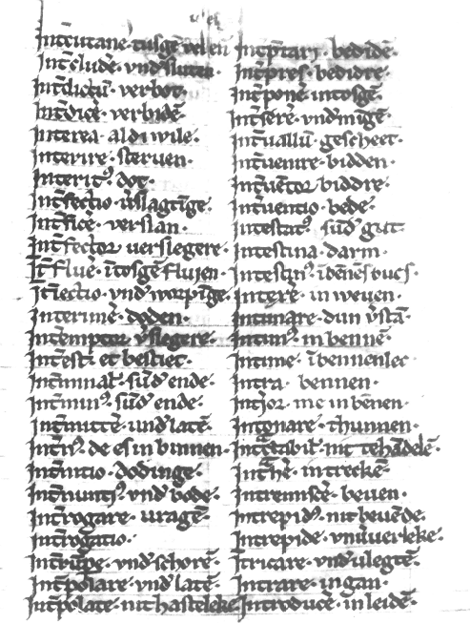 Int'cutane· tusgē velen
Int'clude· vnd'sluten·
Int'dictū· verbot·
Int'dicē· verbidē·
Interea· al di wile·
Interire· steruen·
Interit9· dot·
Int'fectio· v'slagtīge·
Int'ficē· verslan·
Int'fector· uerslegere·
Int'fluē· ītosgē flujen·
Int'iectio· vnd'worpīge·
Interime· doden·
Int'emptor· v'slegere·
Int'est· et bestiet·
Int'minat· sūd'ende·
Int'min9· sūd'ende·
Int'mittē· und'latē·
Int'n9· de es in binnen·
Int'nitio· dodinge·
Int'nunti9· vnd'bode·
Int'rogare· uragē·
Int'rogatio·
Int'rūpe· vnd'schorē·
Int'polare· vnd'latē·
Int'polate· nit hasteleke·
Int'ptari· bedidē·
Int'pres· bedidre·
Int'ponē· intosgē·
Int'serē· vnd'mīgē·
Int'uallū· gescheet·
Int'uenire· bidden·
Int'uētor· biddre·
Int'uentio· bede·
Intestat9· sūd'
Intestina· darm·
Intestin9·
Int'ere· in weuen·
Intimare· dun v'stā·
Intim9· in bennē·
Intime· ībennenlec
Intra· bennen·
Int'ior· me in bēnen·
Intonare· thunnen·
Int'ctabil'· nit tehādelē·
Int'hē· intreckē·
Intremiscē· beuen·
Intrepid9· nit beuēde·
Intrepide· vnuuerleke·
Itricare· vnd'ulegtē·
Intrare· ingan·
Introduce· in leidē·